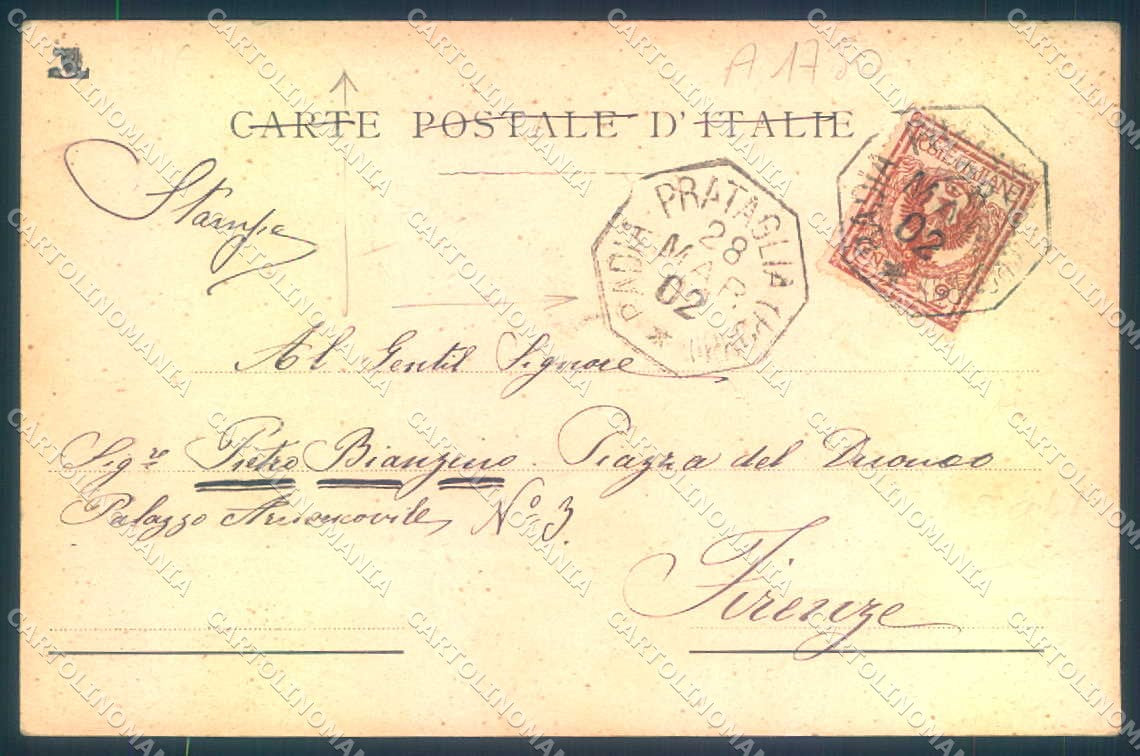 A 17
CARTE POSTALE D'ITALIE
Stampa
BADIA PRATAGLIA
28 MAR 02
POSTE ITALIANE
BADIA
MAR 02
Al Gentil Signore
Sigre Pietro Bianzeno Piazza del Duomo
Palazzo Arcivescovile No 3.
Firenze
CARTOLINOMANIA